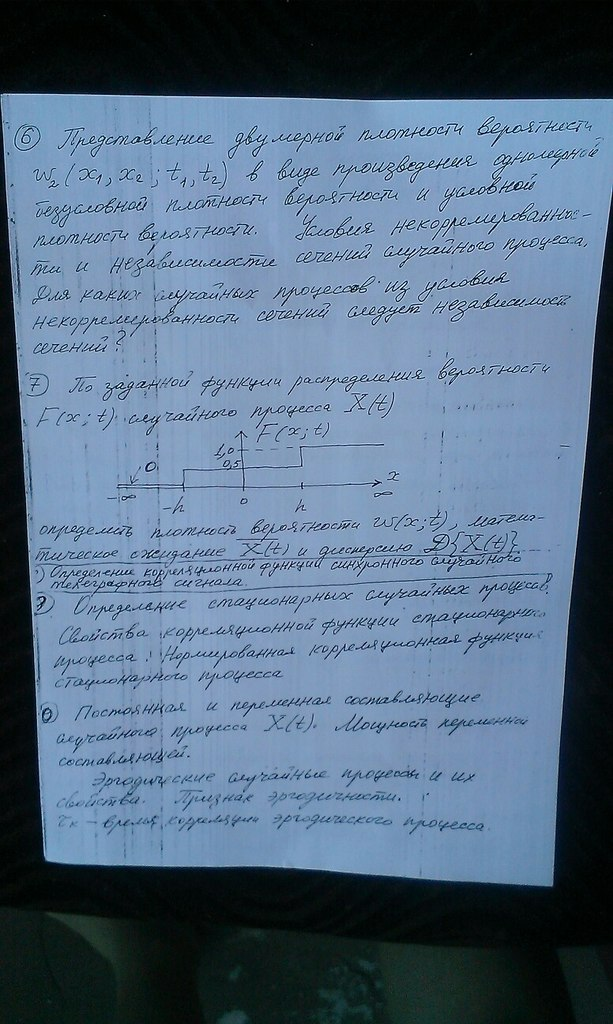 6 Представление двумерной плотности вероятности
W2(x1, x2; t1, t2) в виде произведения одномерной
безусловной плотности вероятности и условной
плотности вероятности. Условия некоррелированнос-
ти и независимости сечений случайного процесса.
Для каких случайных процессов из условия
некоррелированности сечений следует независимость
сечений?
7 По заданной функции распределения вероятности
F(x; t) случайного процесса X(t)
F(x; t)
1,0
0,5
0
x
-∞ -h 0 h ∞
определить плотность вероятности W(x; t), матема-
тическое ожидание X(t) и дисперсию D{X(t)}
) Определение корреляционной функции синхронного случайного
телеграфного сигнала.
9) Определение стационарных случайных процессов.
Свойства корреляционной функции стационарного
процесса. Нормированная корреляционная функция
стационарного процесса
0 Постоянная и переменная составляющие
случайного процесса X(t). Мощность переменной
составляющей.
Эргодические случайные процессы и их
свойства. Признак эргодичности.
τк – время корреляции эргодического процесса.